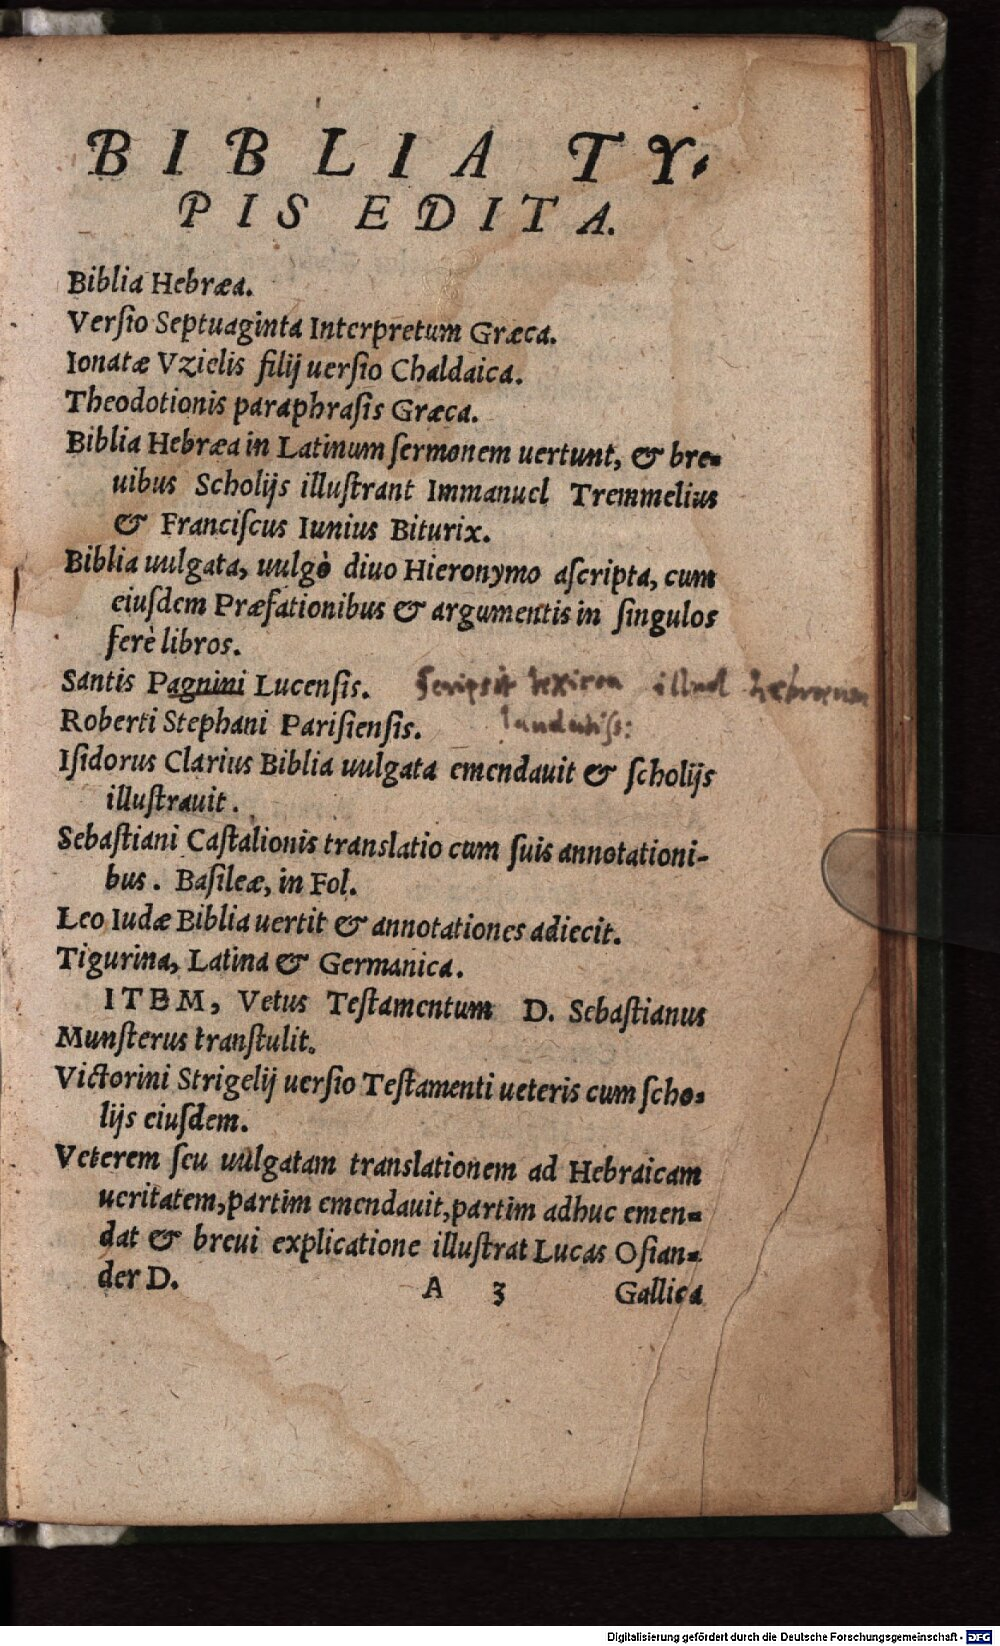 BIBLIA TY-
PIS EDITA.
Biblia Hebræa.
Verſio Septuaginta Interpretum Græca.
Ionatæ Vzielis filij uerſio Chaldaica.
Theodotionis paraphraſis Græca.
Biblia Hebræa in Latinum ſermonem uertunt, & bre-
uibus Scholijs illuſtrant Immanuel Tremmelius
& Franciſcus Iunius Biturix.
Biblia uulgata, uulgò diuo Hieronymo aſcripta, cum
eiuſdem Præfationibus & argumentis in ſingulos
ferè libros.
Santis Pagnini Lucenſis. Scripsit lexicon illud hebræum
laudatiſs:
Roberti Stephani Pariſienſis.
Iſidorus Clarius Biblia uulgata emendauit & ſcholijs
illuſtrauit.
Sebaſtiani Caſtalionis translatio cum ſuis annotationi-
bus. Baſileæ, in Fol.
Leo Iudæ Biblia uertit & annotationes adiecit.
Tigurina, Latina & Germanica.
ITEM, Vetus Teſtamentum D. Sebaſtianus
Munſterus tranſtulit.
Victorini Strigelij uerſio Teſtamenti ueteris cum ſcho-
lijs eiuſdem.
Veterem ſeu uulgatam translationem ad Hebraicam
ueritatem, partim emendauit, partim adhuc emen-
dat & breui explicatione illuſtrat Lucas Oſian-
der D.
A 3 Gallica
Digitalisierung gefördert durch die Deutsche Forschungsgemeinschaft - DFG